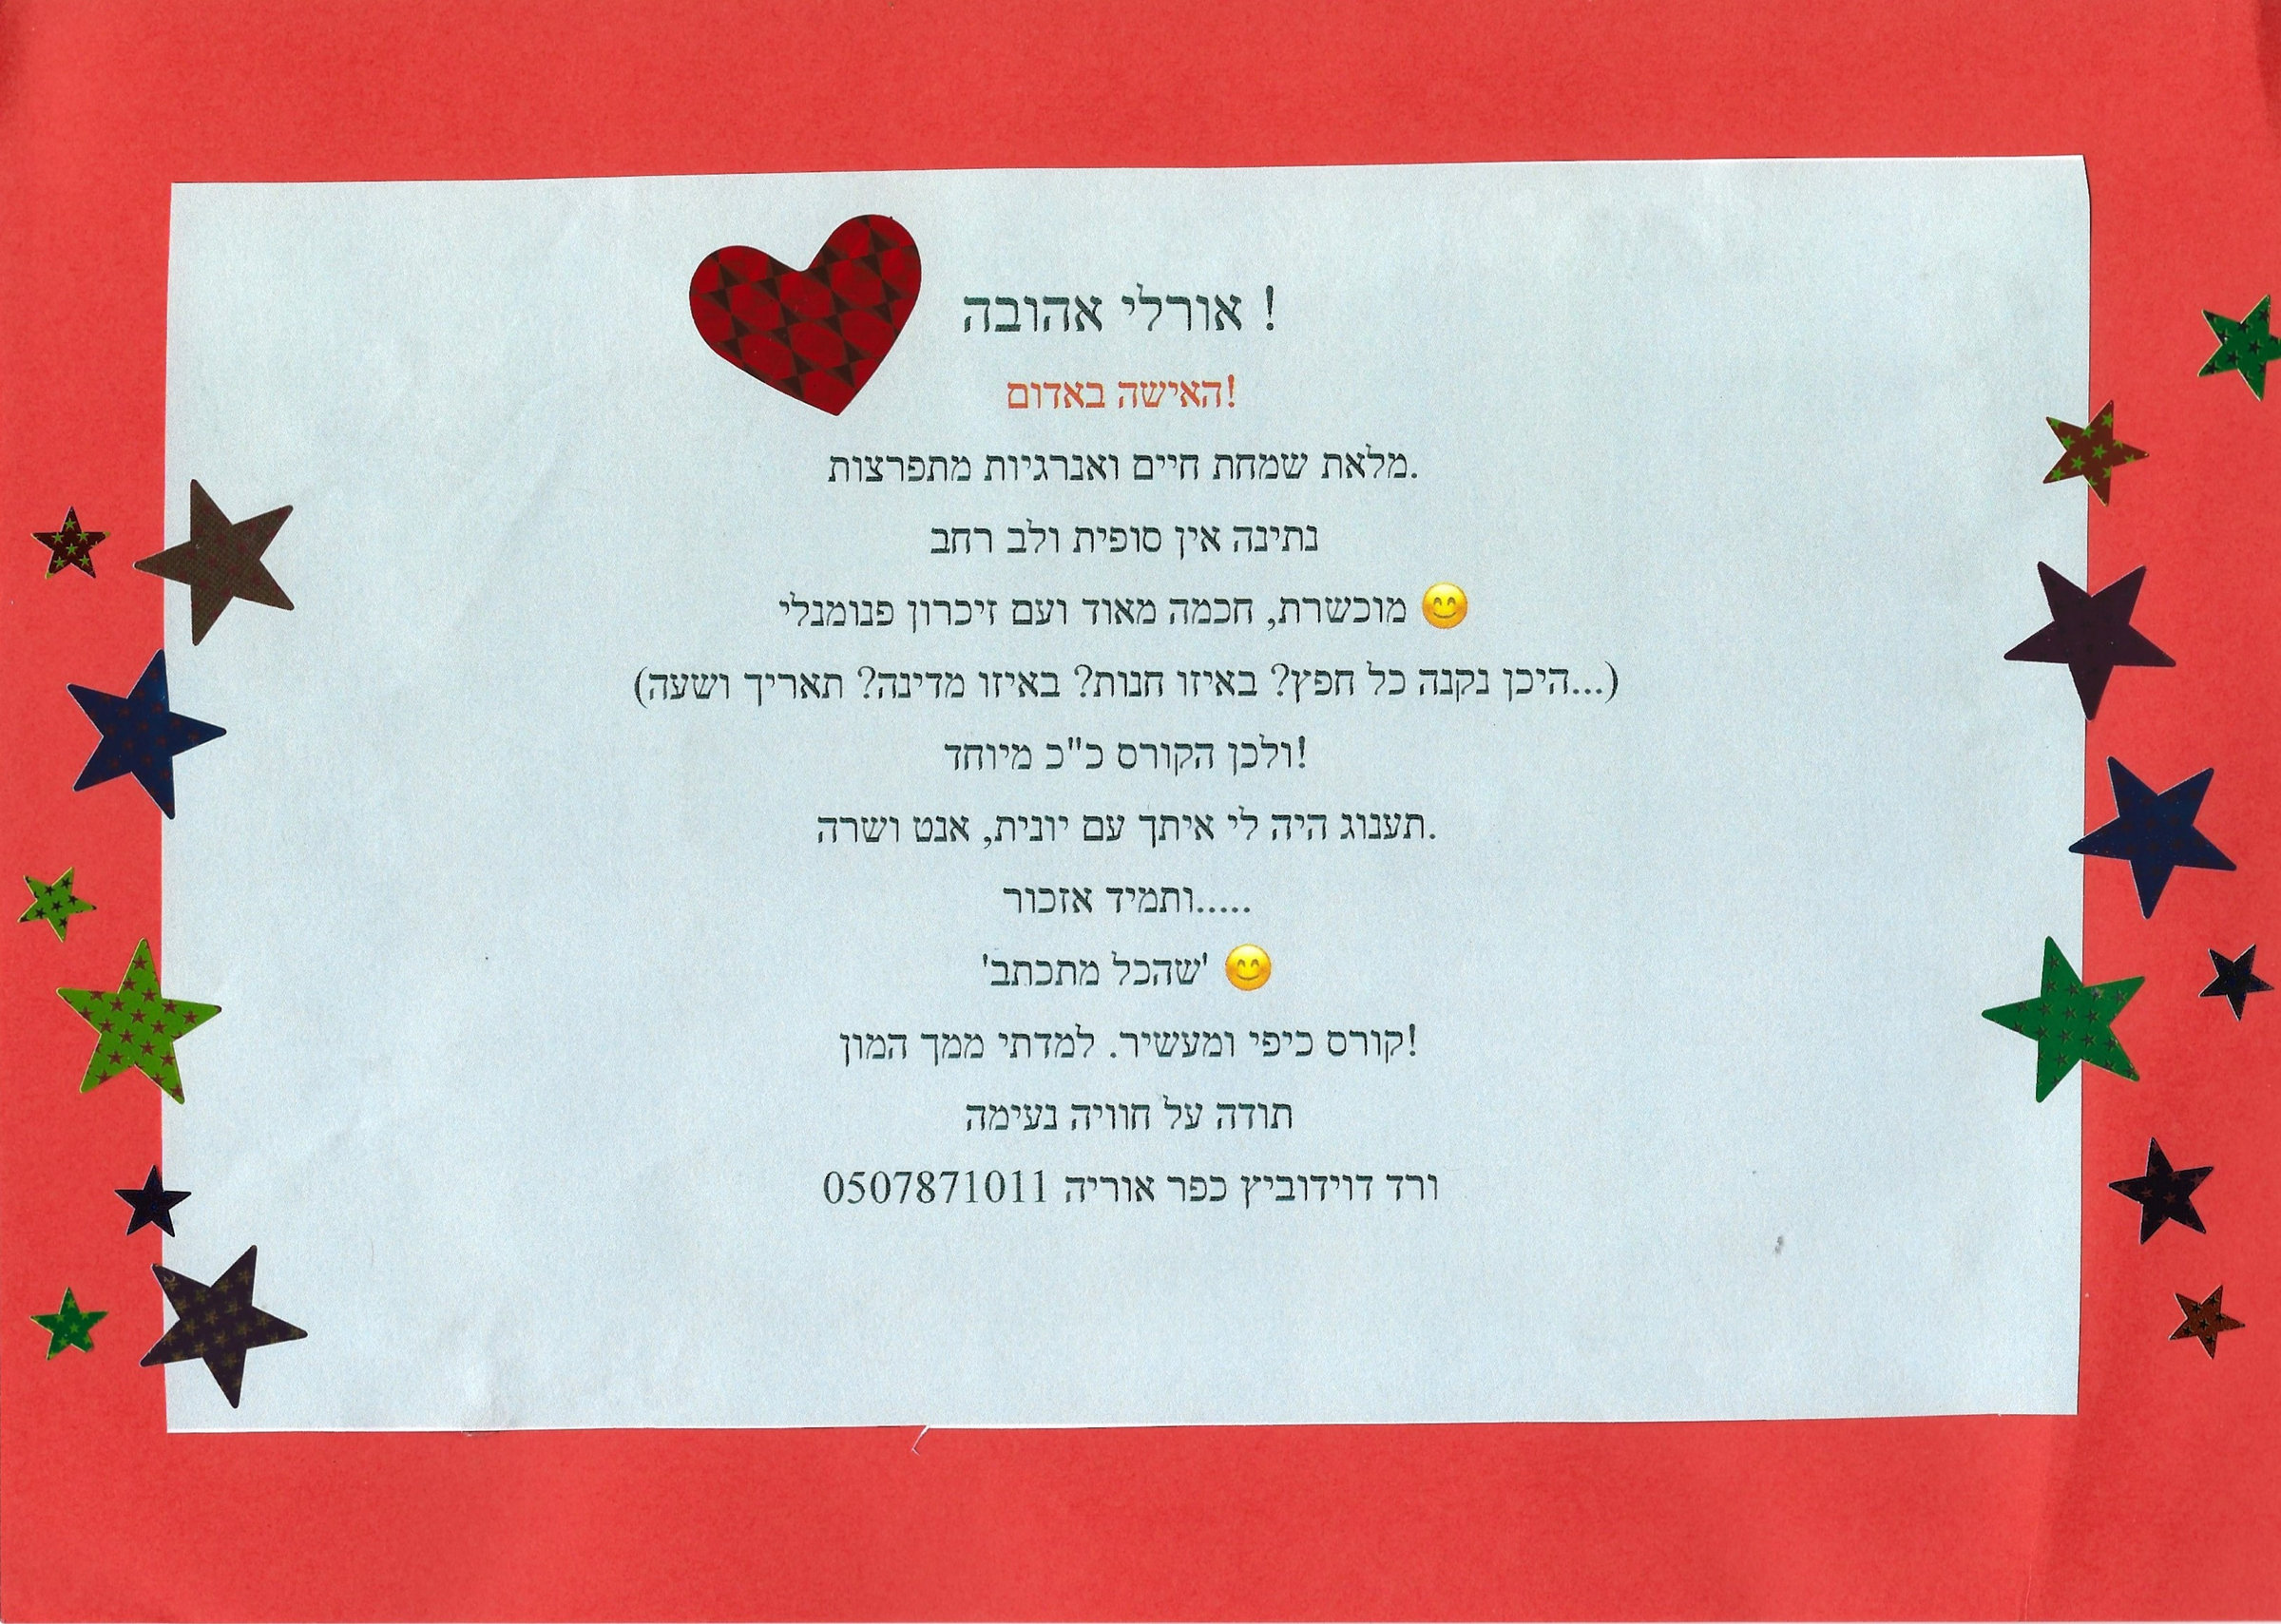 אורלי אהובה !
האישה באדום!
מלאת שמחת חיים ואנרגיות מתפרצות.
נתינה אין סופית ולב רחב
מוכשרת, חכמה מאוד ועם זיכרון פנומנלי 😊
(היכן נקנה כל חפץ? באיזו חנות? באיזו מדינה? תאריך ושעה...)
ולכן הקורס כ"כ מיוחד!
תענוג היה לי איתך עם יונית, אנט ושרה.
ותמיד אזכור.....
'שהכל מתכתב' 😊
קורס כיפי ומעשיר. למדתי ממך המון!
תודה על חוויה נעימה
ורד דוידוביץ כפר אוריה 0507871011